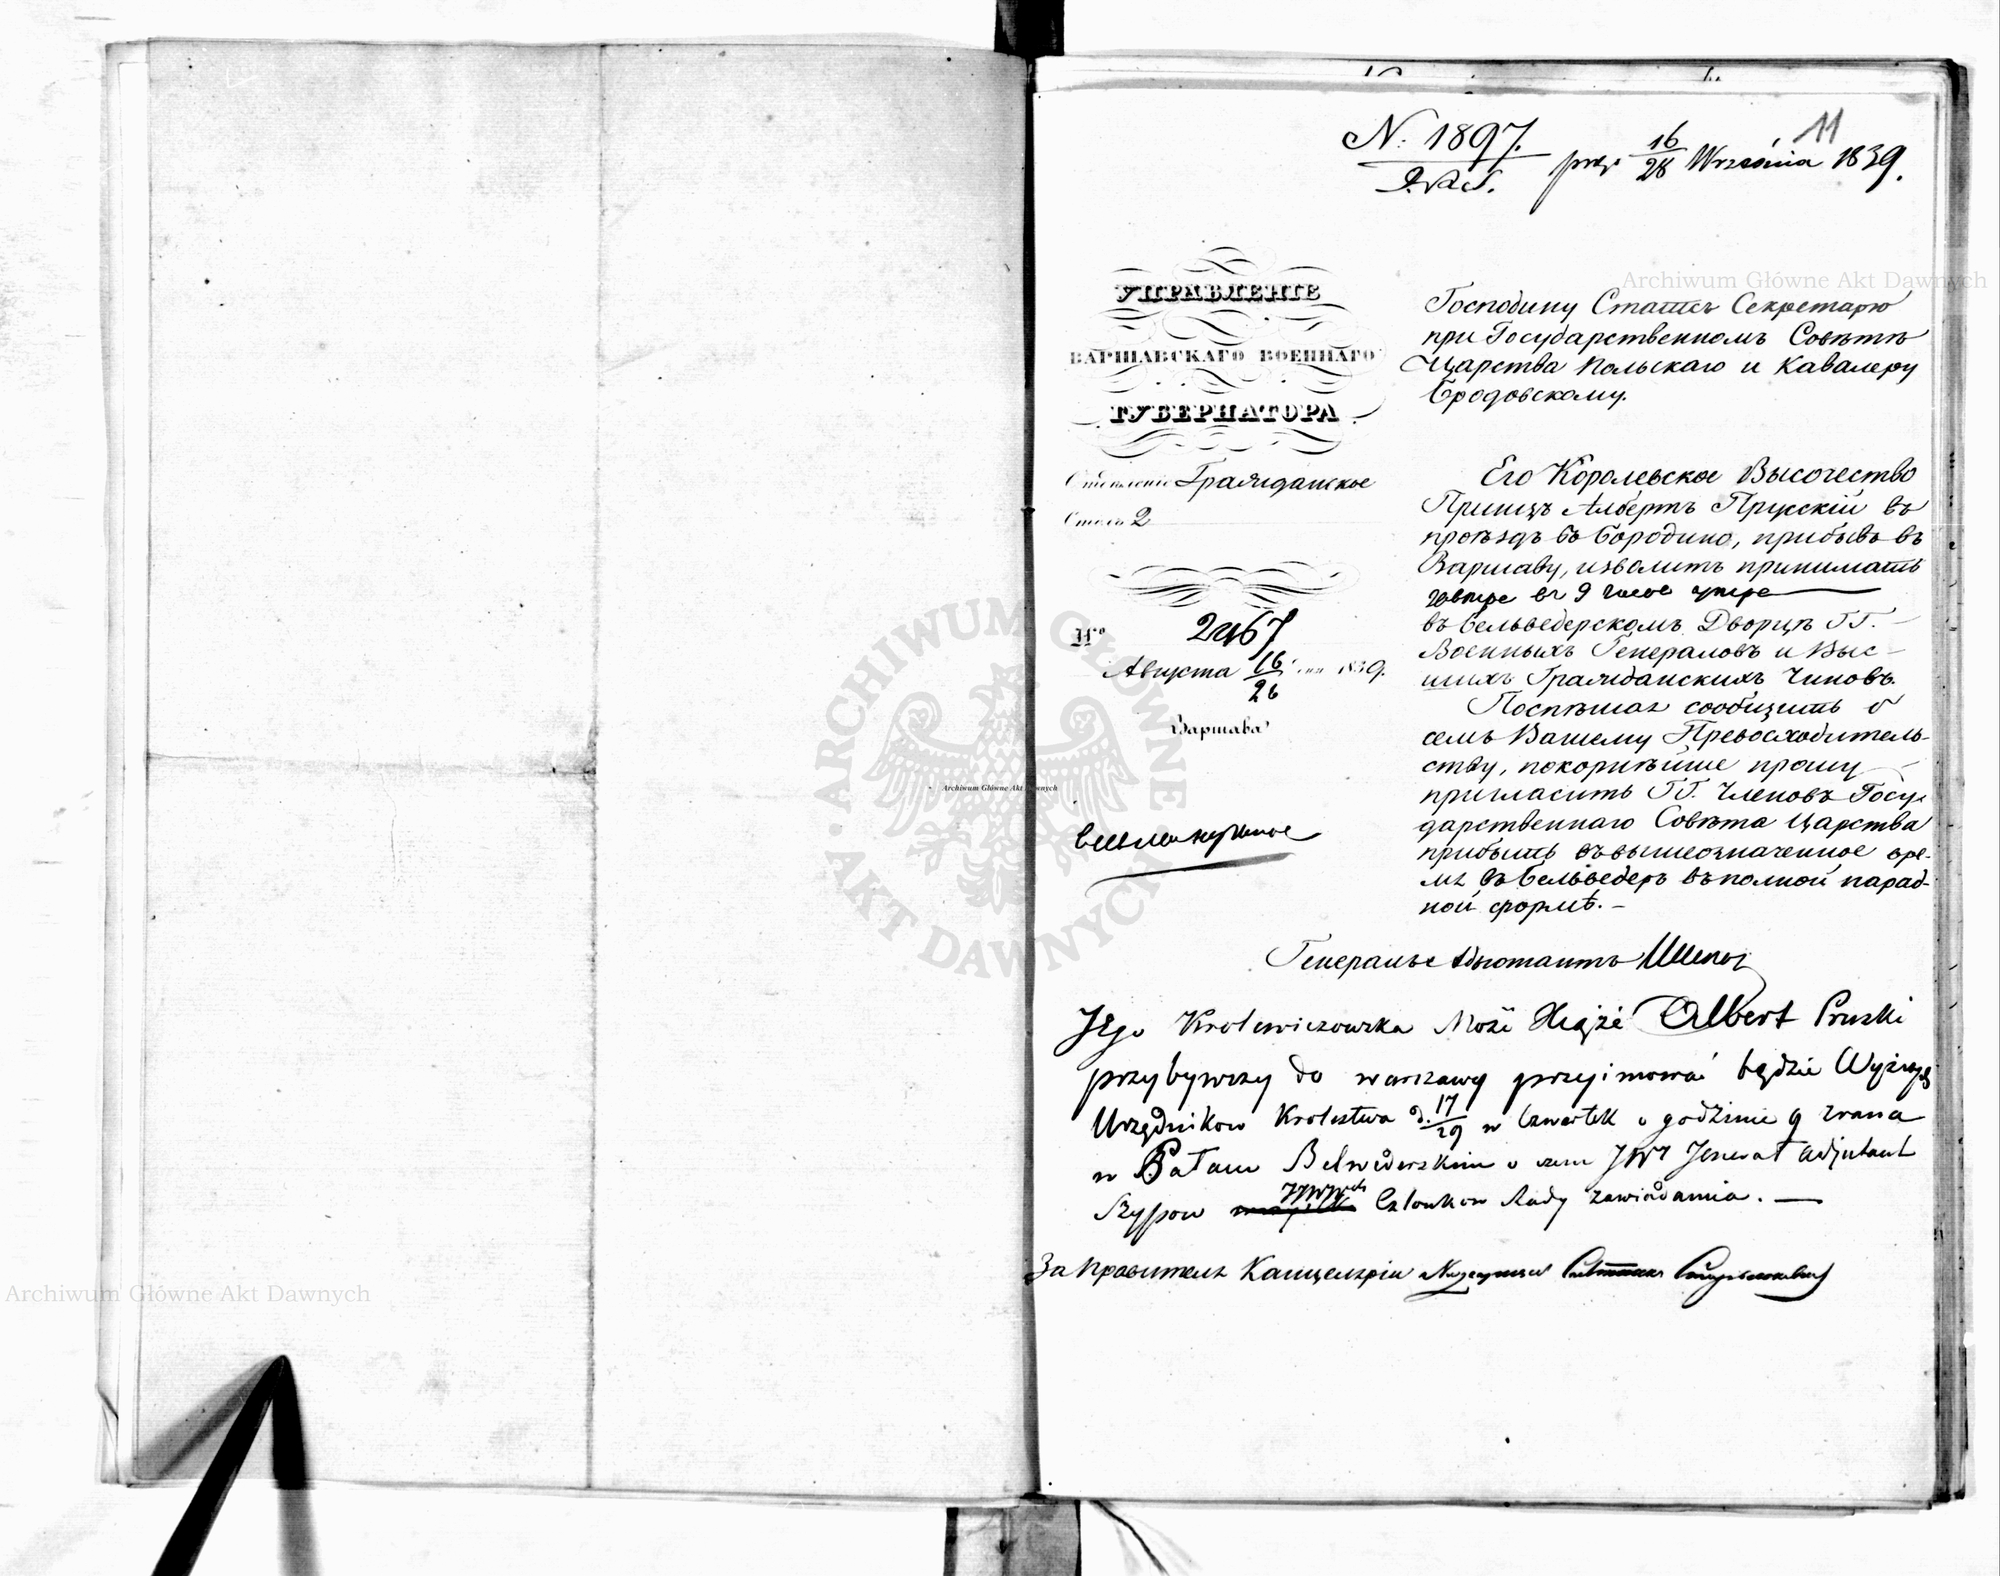 11
N. 1897.
prez. 16/28 Września 1839.
УПРАВЛЕНІЕ
ВАРШАВСКАГО ВОЕННАГО
ГУБЕРНАТОРА
Отдѣленіе Гражданское
Столъ 2
N.º 2467
Августа 16/26 дня 1839.
Варшава
Господину Статсъ Секретарю
при Государственномъ Совѣтѣ
Царства Польскаго и Кавалеру
Бродовскому.
Его Королевское Высочество
Принцъ Албертъ Прускій въ
проѣздъ въ Бородино, прибывъ въ
Варшаву, изволитъ принимать
завтре въ 9 часов утра
въ Бельведерскомъ Дворцѣ ГГ.
Военныхъ Генераловъ и Выс-
шихъ Гражданскихъ Чиновъ.
Поспѣшая сообщить о
семъ Вашему Превосходитель-
ству, покорнѣйше прошу
пригласить ГГ. Членовъ Госу-
дарственнаго Совѣта Царства
прибыть въ вышеозначенное вре-
мя въ Бельведеръ въ полной парад-
ной формѣ. -
весьма нужное
Генералъ Адъютантъ Шипов
Jego Krolewiczowska Mość Xiążę Albert Pruski
przybywszy do Warszawy przyimować będzie Wyższych
Urzędnikow Krolestwa d. 17/29 w Czwartek o godzinie 9 zrana
w Pałacu Belwederskim o czem JW Jenerał Adjutant
Szypow JWWch Członkow Rady zawiadamia. —
За Правителя Канцеляріи
Archiwum Główne Akt Dawnych
Archiwum Główne Akt Dawnych
Archiwum Główne Akt Dawnych
ARCHIWUM GŁÓWNE AKT DAWNYCH